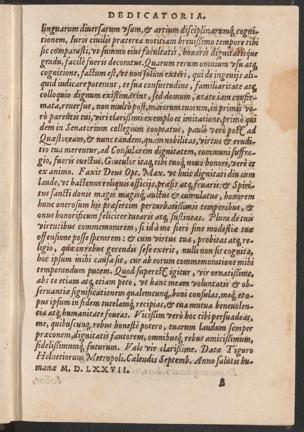 DEDICATORIA.
linguarum diuersarum vsum, & artium disciplinarumq; cogni-
tionem, Iuris ciuilis praeterea notitiam breuissimo tempore tibi
sic comparasti, vt summo eius facultatis, honoris dignitatisque
gradu, facilè fueris decoratus. Quarum rerum omnium vsu atq;
cognitione, factum est, vt non solùm exteri, qui de ingenijs ali-
quid iudicare poterant, te sua consuetudine, familiaritate atq;
colloquio dignum existimarint, sed domum, aetate iam confir-
mata, reuersus, non multò pòst, maiorum tuorum, in primis ve-
rò parentis tui, viri clarissimi exemplo et imitatione, primò qui
dem in Senatorium collegium cooptatus, paulò verò post, ad
Quaesturam, & nunc tandem, quum nobilitas, virtus & erudi-
tio tua mererentur, ad Consularem dignitatem, communi suffra-
gio, fueris euectus. Gratulor itaq; tibi tuoq; nouo honore, verè et
ex animo. Faxit Deus Opt. Max. vt huic dignitati diu cum
laude, vt hactenus reliquis officijs, praesis atq; fruaris: & Spiri-
tus sancti donis magis magisq; auctus & cumulatus, honorem
hunc onerosum his praesertim perturbatissimis temporibus, &
onus honorificum feliciter tuearis atq; sustineas. Plura de tuis
virtutibus commemorarem, si id a me fieri sine modestiae tuae
offensione posse sperarem: & cum virtus tua, probitas atq; re-
ligio, quae in rebus gerendis sese exerit, nulli non sit cognita,
hoc ipsum mihi causa sit, cur ab eorum commemoratione mihi
temperandum putem. Quod superest igitur, vir ornatissime,
abs te etiam atq; etiam peto, vt hanc meam voluntatis & ob-
seruantiae significationem qualemcunq;, boni consulas, meq; to-
tum ipsum in fidem tutelamq; recipias, & tua mecum beneuolen-
tia atq; humanitate foueas. Vicissim verò hoc tibi persuadeas,
me, quibuscunq; rebus honestè potero, tuarum laudum semper
praeconem, dignitatis fautorem, omnibusq; rebus amicissimum,
fidelissimumq; futurum. Vale vir clarissime. Data Tiguro
Heluetiorum Metropoli. Calendis Septemb. Anno salutis hu-
manae M. D. LXXVII.